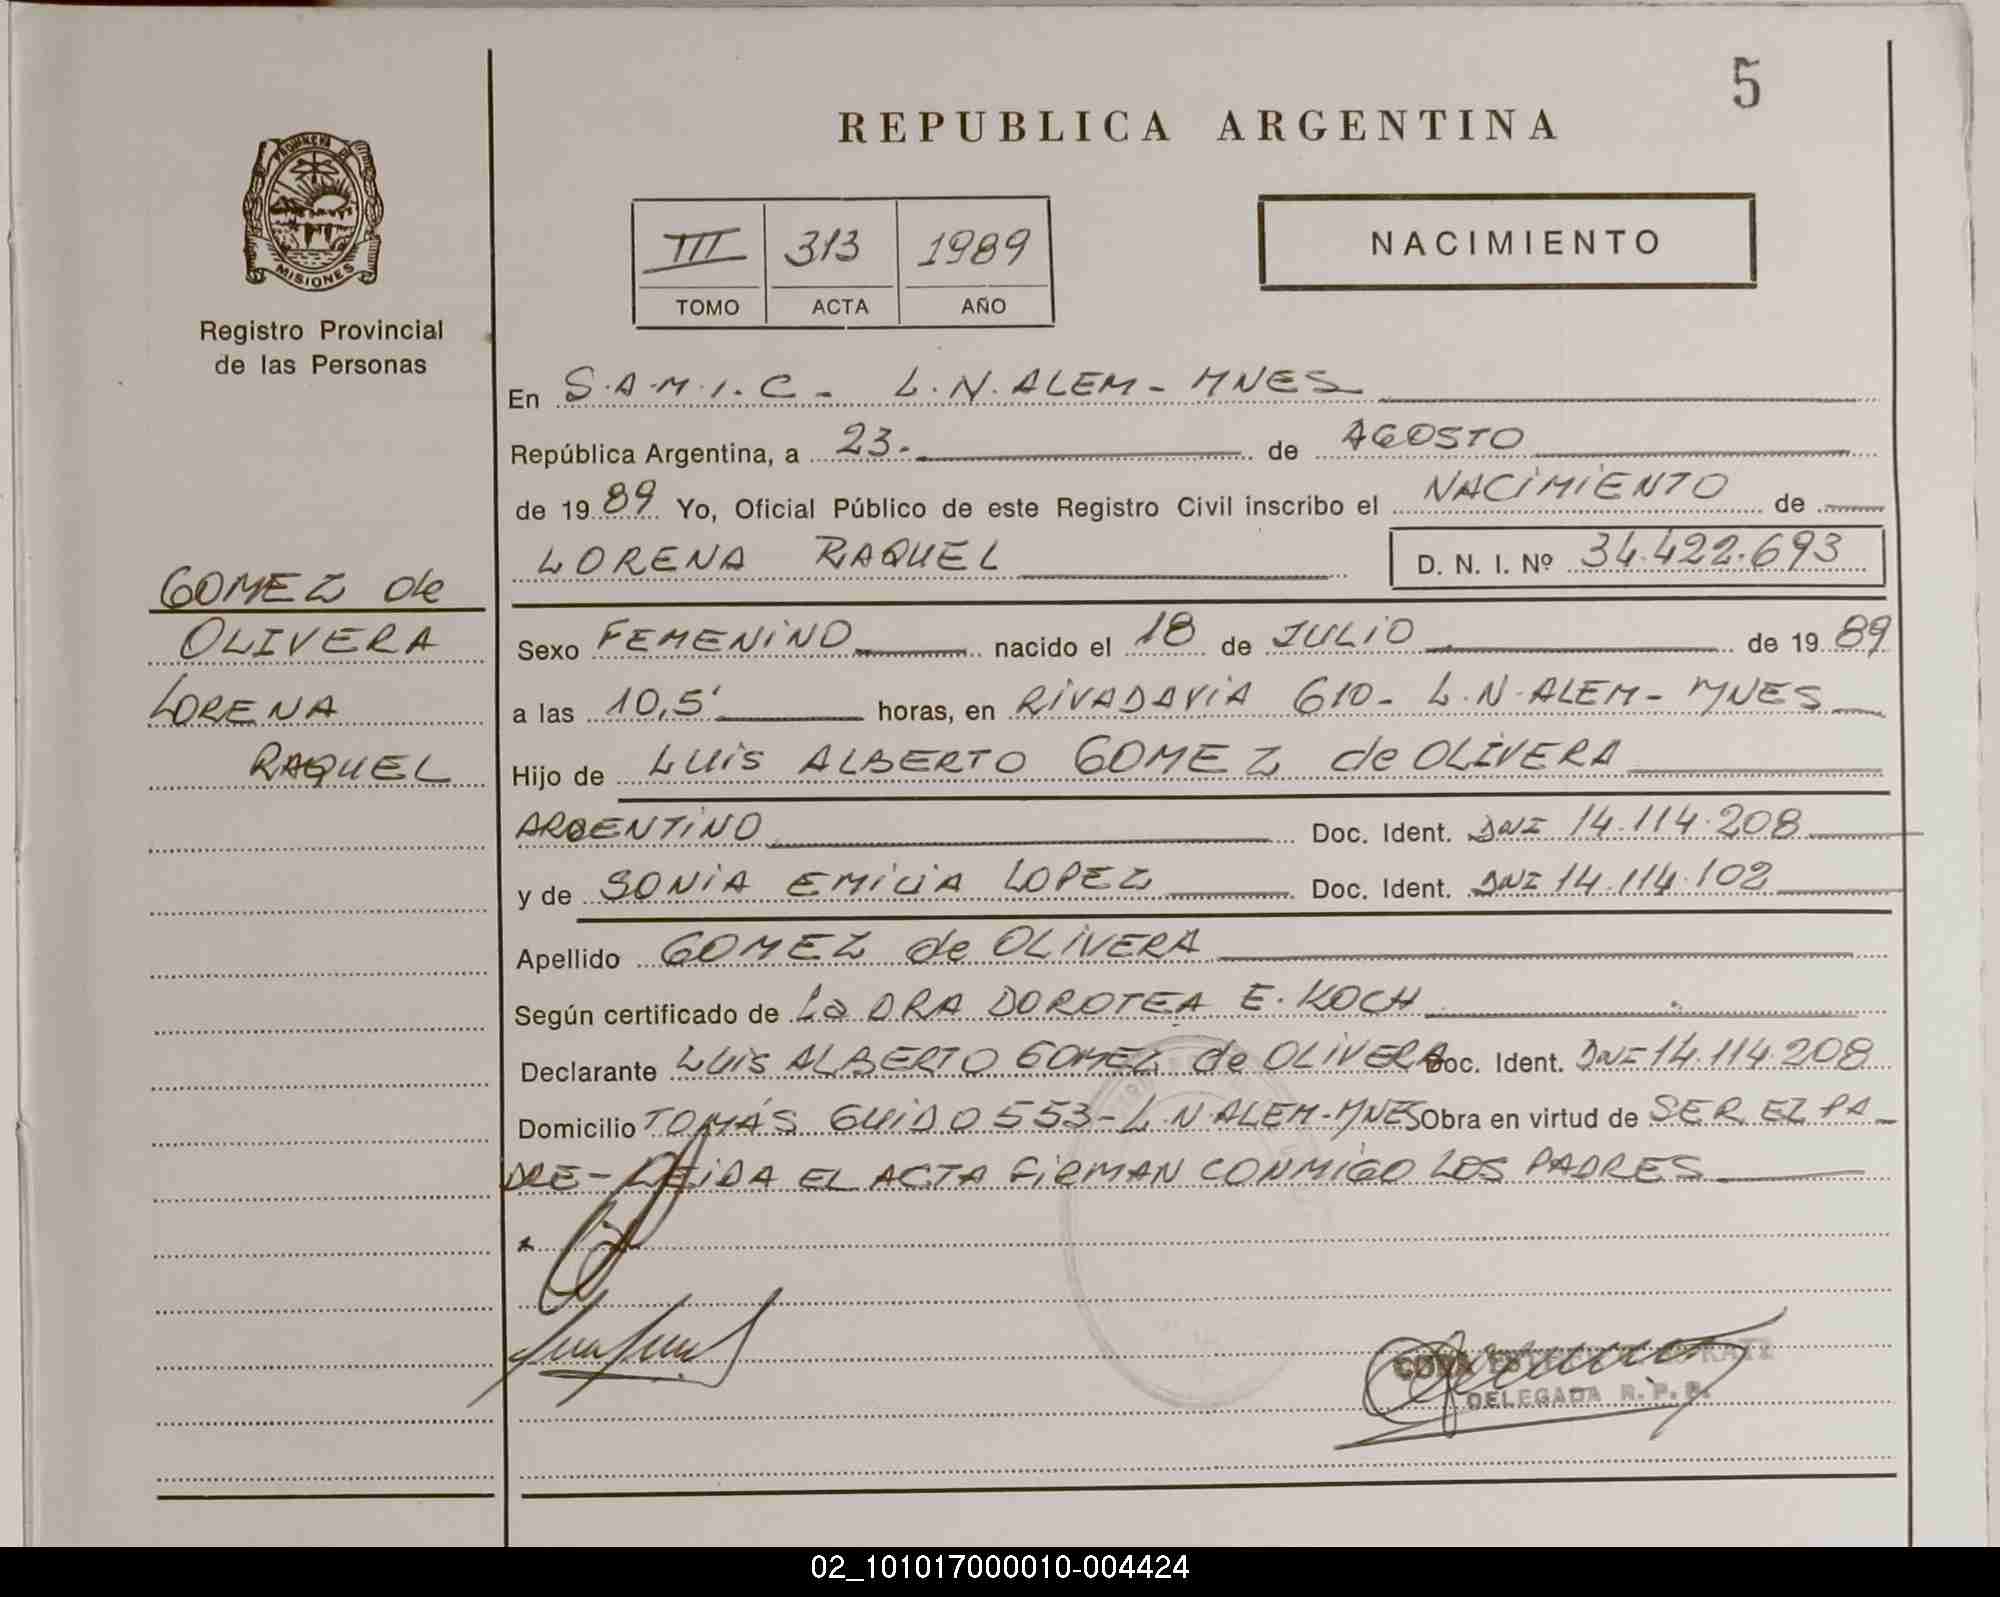 5
REPUBLICA ARGENTINA
PROVINCIA DE
MISIONES
Registro Provincial
de las Personas
III 313 1989
TOMO ACTA AÑO
NACIMIENTO
En S.A.M.I.C - L.N.ALEM - MNES
República Argentina, a 23. de AGOSTO
de 1989 Yo, Oficial Público de este Registro Civil inscribo el NACIMIENTO de
LORENA RAQUEL D. N. I. Nº 34.422.693
GOMEZ de
OLIVERA
LORENA
RAQUEL
Sexo FEMENINO nacido el 18 de JULIO de 1989
a las 10,5' horas, en RIVADAVIA 610- L.N.ALEM- MNES
Hijo de LUIS ALBERTO GOMEZ de OLIVERA
ARGENTINO Doc. Ident. DNI 14.114.208
y de SONIA EMILIA LOPEZ Doc. Ident. DNI 14.114.102
Apellido GOMEZ de OLIVERA
Según certificado de La DRA DOROTEA E. KOCH
Declarante LUIS ALBERTO GOMEZ de OLIVERA Doc. Ident. DNI 14.114.208
Domicilio TOMÁS GUIDO 553-L.N.ALEM-MNES Obra en virtud de SER EL PA
DRE- LEIDA EL ACTA FIRMAN CONMIGO LOS PADRES
DELEGADA R. P. P.
02_101017000010-004424